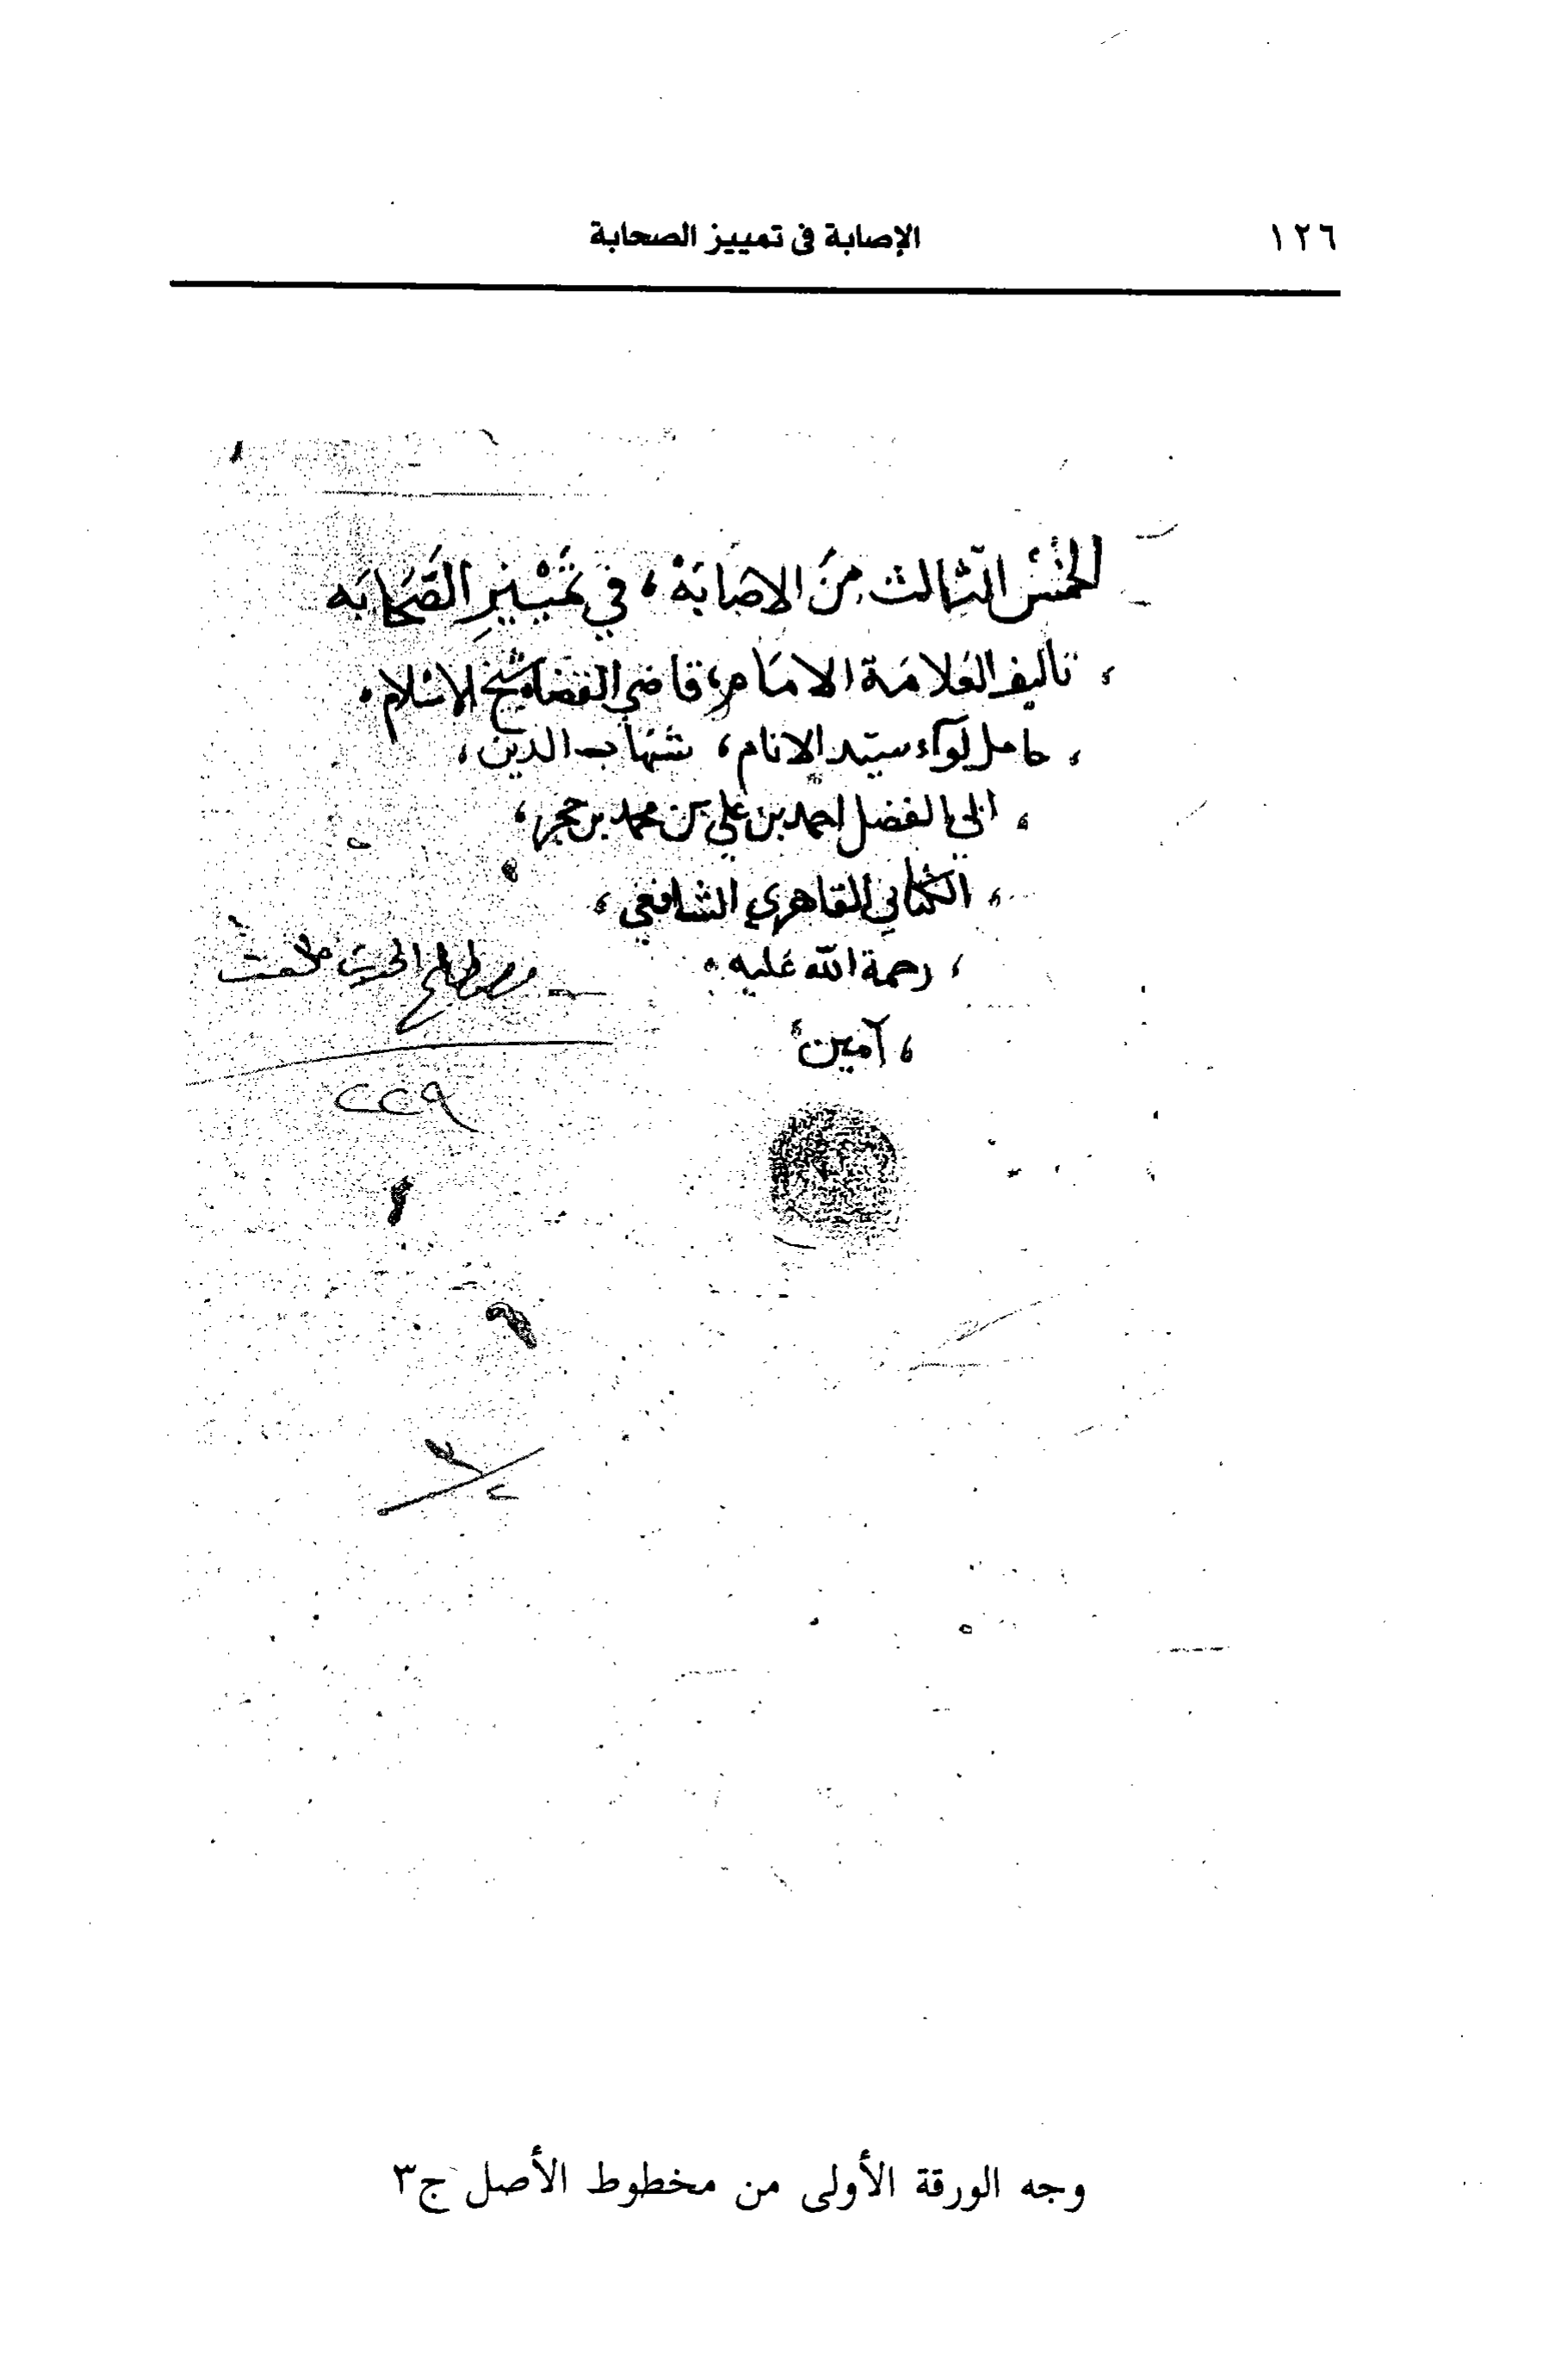 ١٢٦
الإصابة فى تمييز الصحابة
الخُمْسُ الثالث مِنَ الاصَابَةْ، في تَمْيْيْزِ الصَّحَابَه
، تأليف العَلامَة الامَام، قاضي القضاه شيخ الاسلام،
، حامل لوآء سيّد الانام، شهَاب الدين،
، ابي الفضل احمد بن علي بن محمد بن حجر،
، الكناني القاهري الشافعي،
، رحمة الله عليه
مصطلح الحديث
، آمين
٢٢٩
وجه الورقة الأولى من مخطوط الأصل ج٣